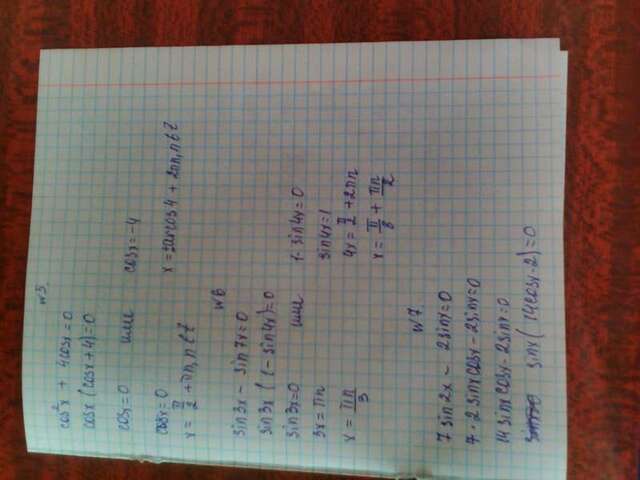 №5.
cos²x + 4cosx = 0
cosx (cosx + 4) = 0
cosx = 0 или cosx = -4
cosx = 0 x = ±arccos 4 + 2πn, n ∈ Z
x = π/2 + πn, n ∈ Z
№6
sin3x - sin7x = 0
sin3x (1 - sin4x) = 0
sin3x = 0 или 1 - sin4x = 0
3x = πn sin4x = 1
x = πn/3 4x = π/2 + 2πn
x = π/8 + πn/2
№7.
7 sin2x - 2sinx = 0
7 · 2 sinx cosx - 2sinx = 0
14 sinx cosx - 2sinx = 0
sinx (14cosx - 2) = 0